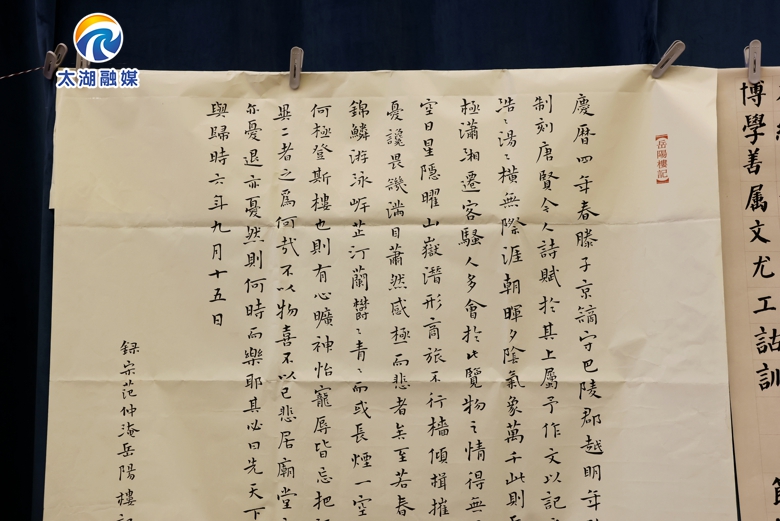 太湖融媒
【岳陽樓記】
慶曆四年春滕子京謫守巴陵郡越明年
制刻唐賢今人詩賦於其上屬予作文以記
浩〻湯〻橫無際涯朝暉夕陰氣象萬千此則
極瀟湘遷客騷人多會於此覽物之情得無
空日星隱曜山嶽潛形商旅不行檣傾楫摧
憂讒畏譏滿目蕭然感極而悲者矣至若春
錦鱗游泳岸芷汀蘭鬱〻青〻而或長煙一空
何極登斯樓也則有心曠神怡寵辱皆忘把
異二者之為何哉不以物喜不以己悲居廟堂
亦憂退亦憂然則何時而樂耶其必曰先天下
與歸時六年九月十五日
録宗范仲淹岳陽樓記
博學善属文尤工詁訓